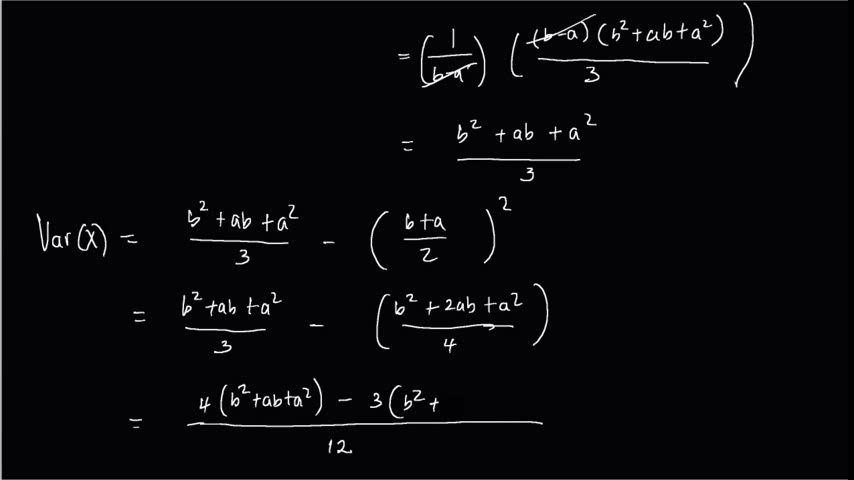 = (1/(b-a)) ((b-a)(b²+ab+a²)/3)
= (b² + ab + a²)/3
Var(X) = (b² + ab + a²)/3 - ((b+a)/2)²
= (b² + ab + a²)/3 - ((b² + 2ab + a²)/4)
= (4(b²+ab+a²) - 3(b² +)/12